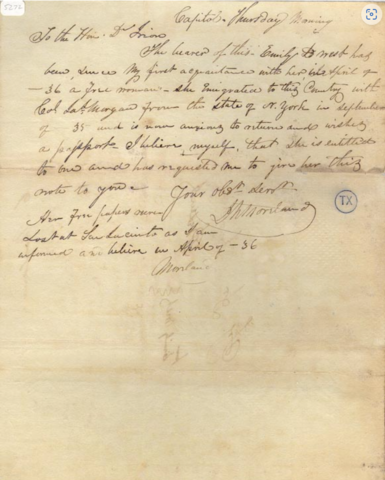 Capitol - Thursday Morning
To the Hon. Dr Irion
The bearer of this Emily D. West has
been, since my first acquaintance with her in April of
-36 a free woman - she Emigrated to this Country with
Col Jas Morgan from the state of N. York in september
of 35 and is now anxious to return and wishes
a passport - I believe myself, that she is entitled
to one and has requested me to give her this
note to you.
Your obdt. Servt.
I N Moreland
Her free papers were
Lost at San Jacinto as I am
informed and believe in April of -36
Moreland
TX